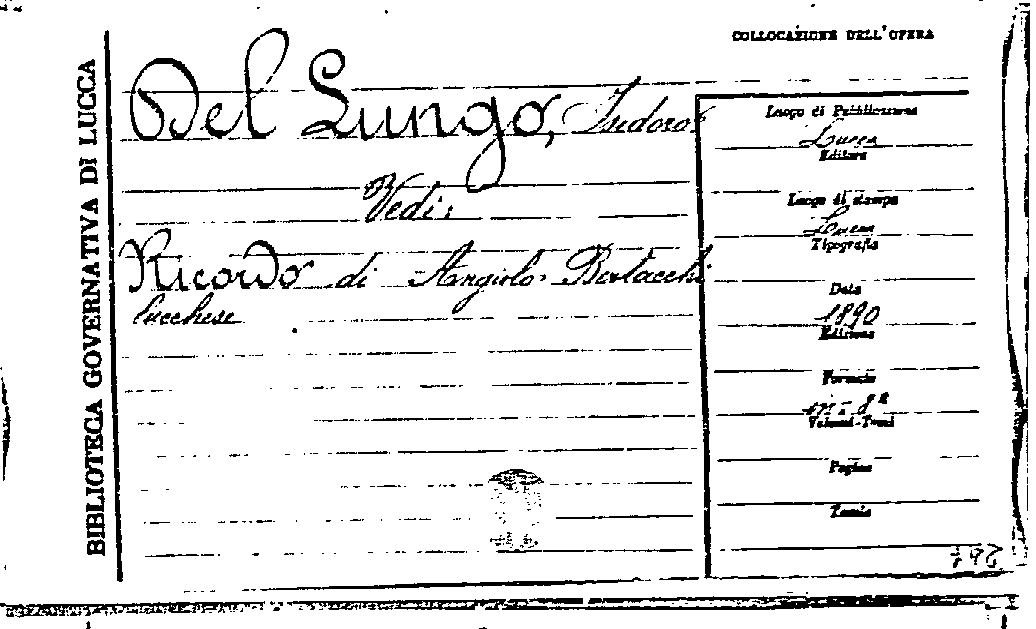 COLLOCAZIONE DELL'OPERA
BIBLIOTECA GOVERNATIVA DI LUCCA
Del Lungo, Isidoro
Vedi:
Ricordo di Angiolo Bertacchi
lucchese
Luogo di Pubblicazione
Lucca
Editore
Luogo di stampa
Lucca
Tipografia
Data
1890
Edizione
Formato
in-8º
Volumi-Tomi
Pagine
Tavole